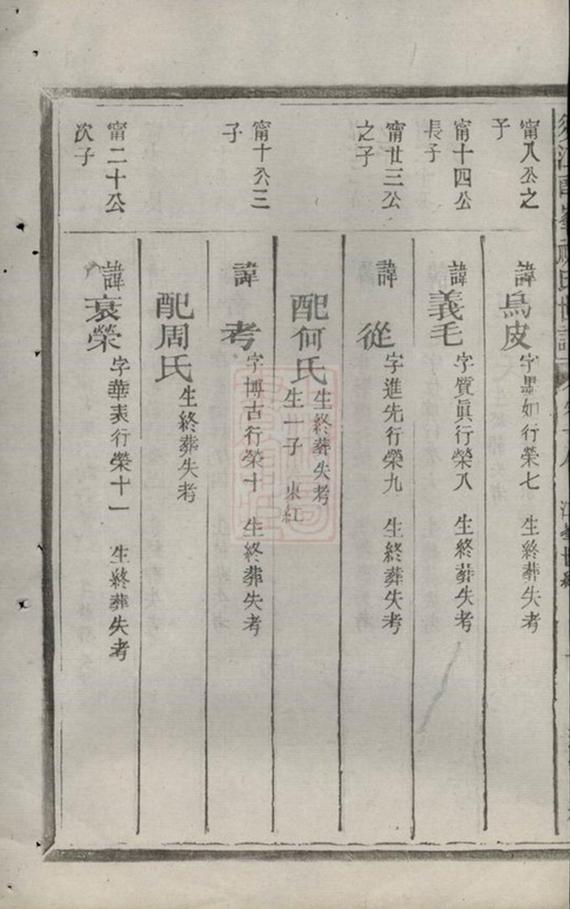 甯八公之
子
諱烏皮
字墨如行榮七 生終葬失考
甯十四公
長子
諱義毛
字質眞行榮八 生終葬失考
甯廿三公
之子
諱從
字進先行榮九 生終葬失考
配何氏
生終葬失考
生一子 東紅
甯十公三
子
諱考
字博古行榮十 生終葬失考
配周氏
生終葬失考
甯二十公
次子
諱袞榮
字華衮行榮十一 生終葬失考